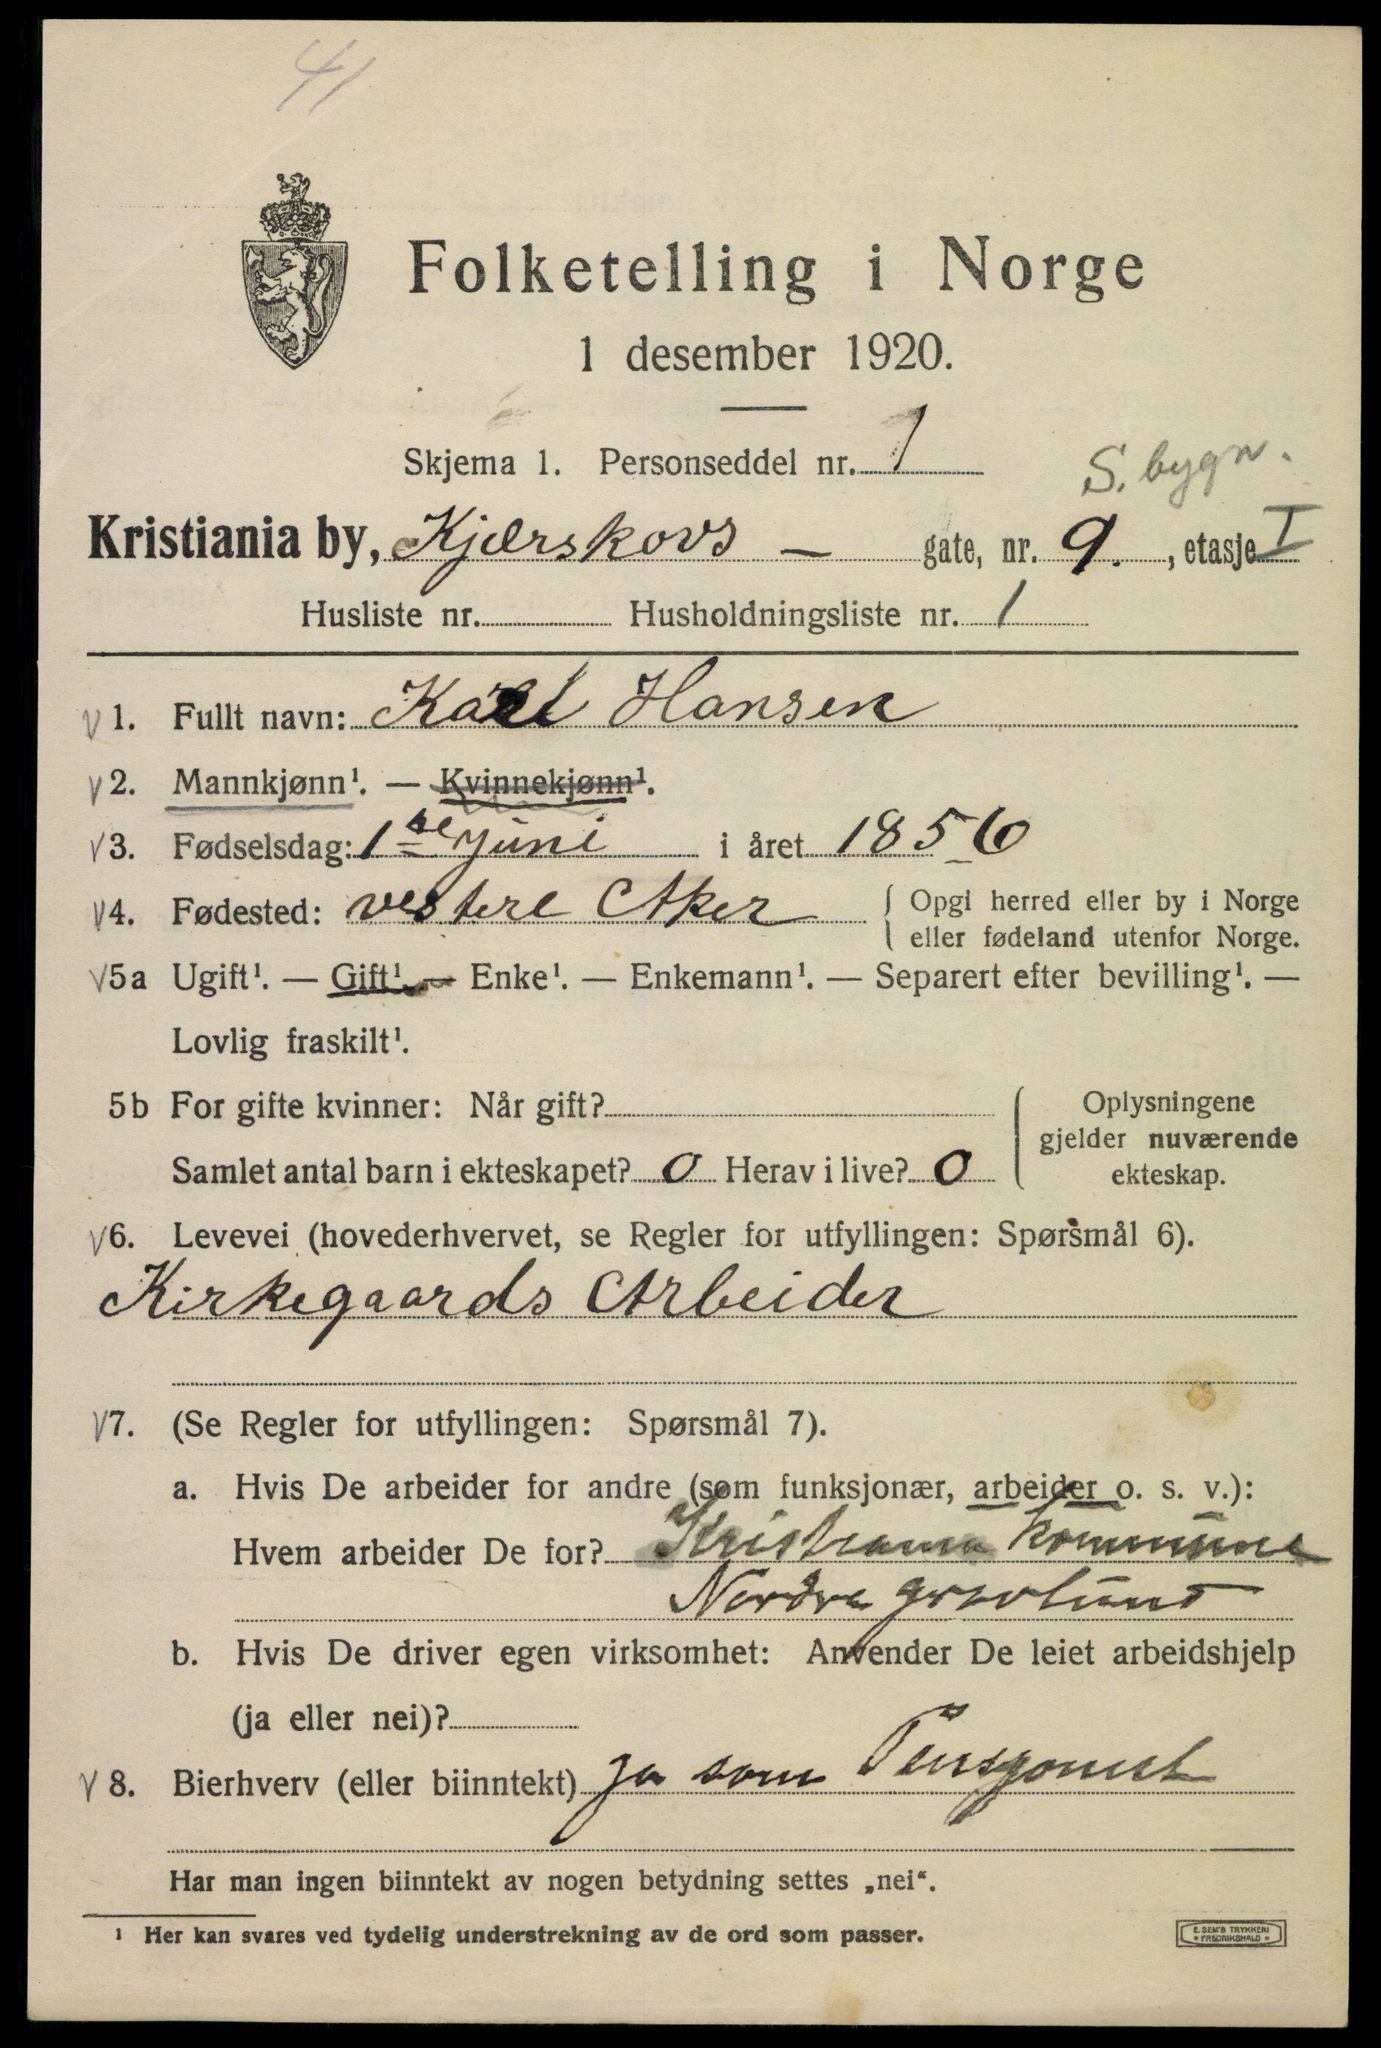 41
Folketelling i Norge
1 desember 1920.
Skjema 1. Personseddel nr. 1
S. bygn.
Kristiania by, Kjærskovs — gate, nr. 9. , etasje I
Husliste nr. Husholdningsliste nr. 1
V 1. Fullt navn: Karl Hansen
V 2. Mannkjønn¹. — Kvinnekjønn¹.
V 3. Fødselsdag: 1ste juni i året 1856
V 4. Fødested: vestere Aker { Opgi herred eller by i Norge
eller fødeland utenfor Norge.
V 5a Ugift¹. — Gift¹. — Enke¹. — Enkemann¹. — Separert efter bevilling¹. —
Lovlig fraskilt¹.
5b For gifte kvinner: Når gift? { Oplysningene
gjelder nuværende
Samlet antal barn i ekteskapet? 0 Herav i live? 0 ekteskap.
V 6. Levevei (hovederhvervet, se Regler for utfyllingen: Spørsmål 6).
Kirkegaards Arbeider
V 7. (Se Regler for utfyllingen: Spørsmål 7).
a. Hvis De arbeider for andre (som funksjonær, arbeider o. s. v.):
Hvem arbeider De for? Kristiania kommune
Nordre gravlund
b. Hvis De driver egen virksomhet: Anvender De leiet arbeidshjelp
(ja eller nei)?
V 8. Bierhverv (eller biinntekt) ja som Pensjonist
Har man ingen biinntekt av nogen betydning settes „nei“.
¹ Her kan svares ved tydelig understrekning av de ord som passer.
E. SEM'S TRYKKERI
* FREDRIKSHALD *